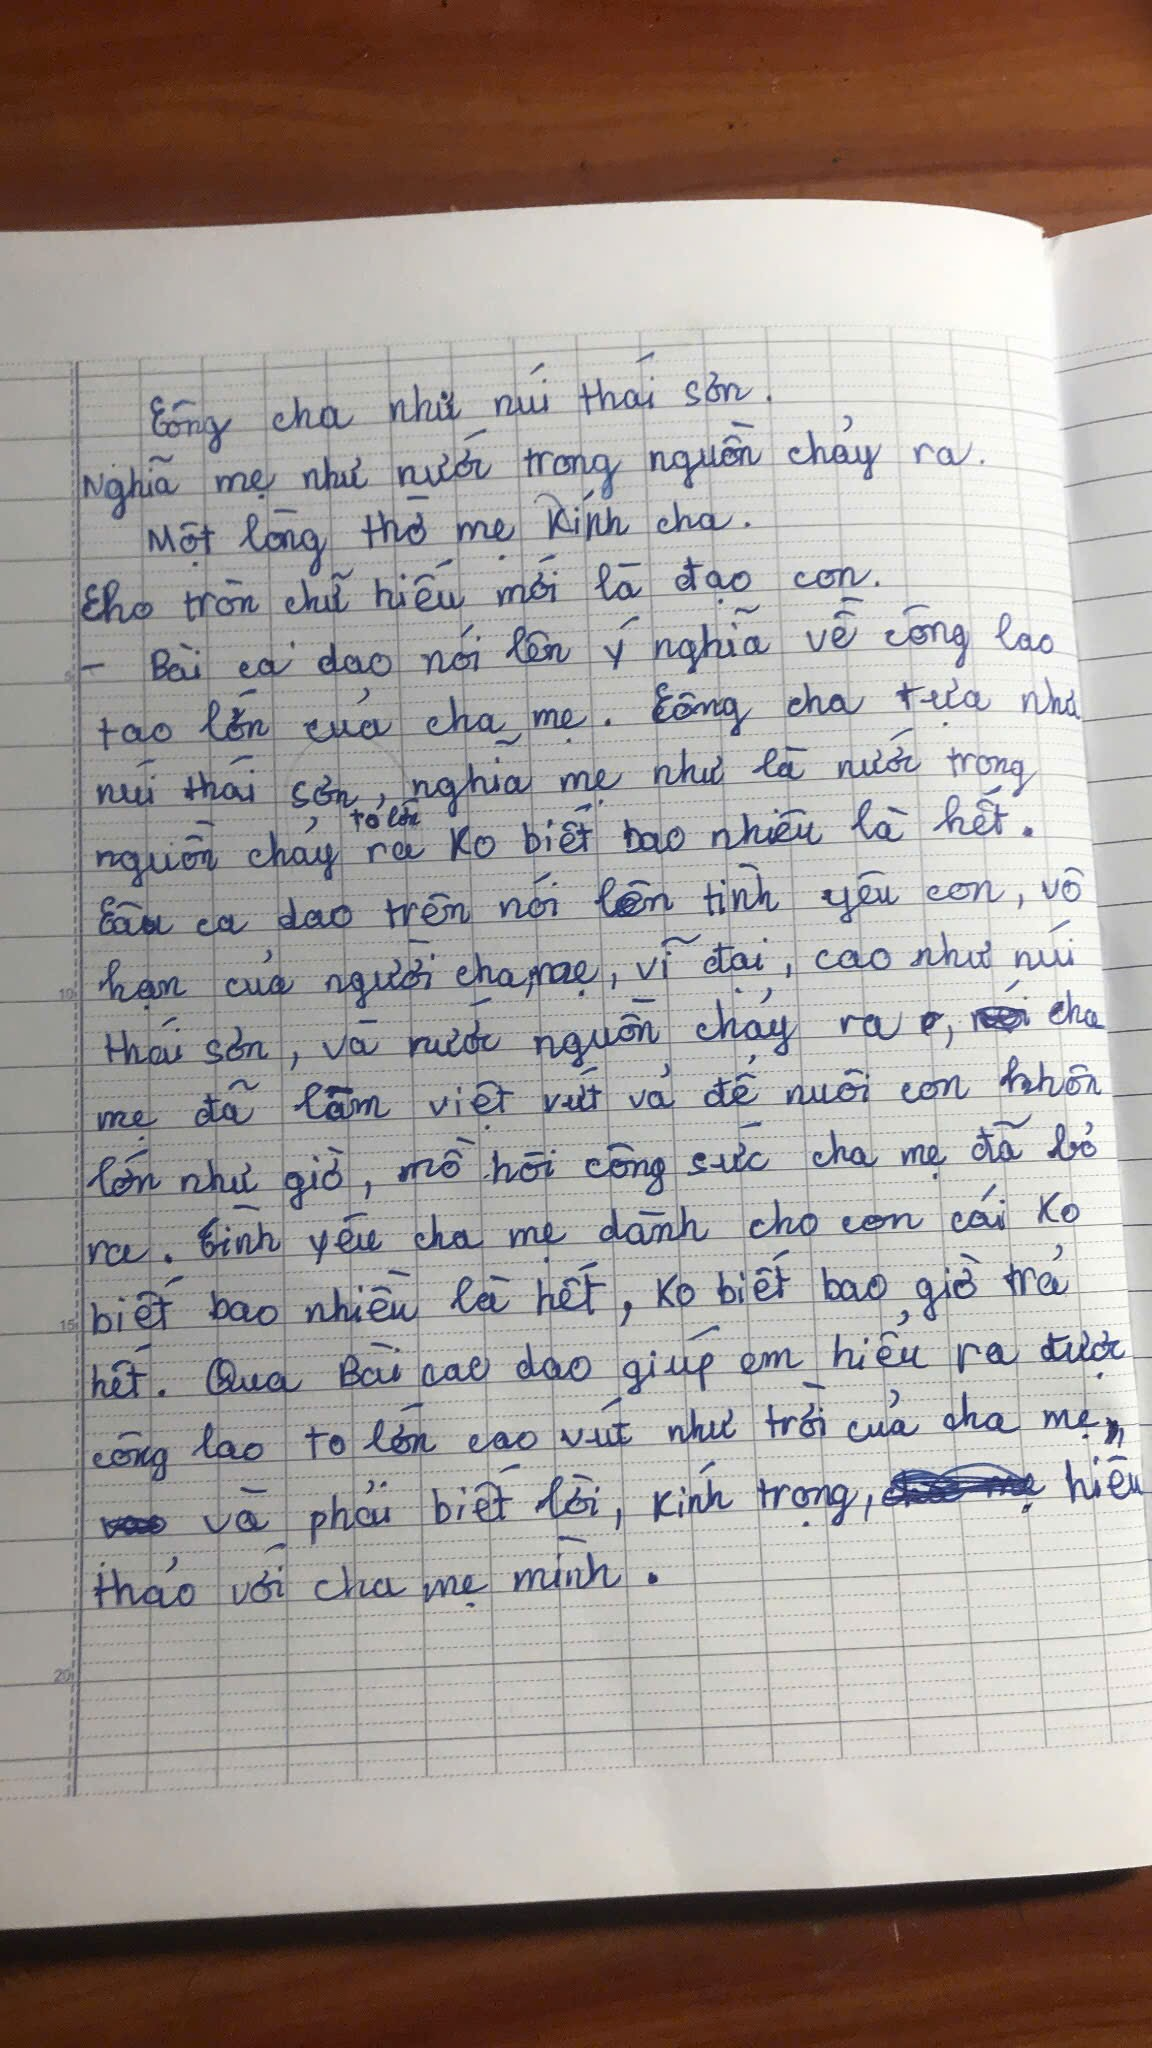 Công cha như núi thái sơn.
Nghĩa mẹ như nước trong nguồn chảy ra.
Một lòng thờ mẹ kính cha.
Cho tròn chữ hiếu mới là đạo con.
- Bài ca dao nói lên ý nghĩa về công lao
tao lớn của cha mẹ. Công cha tựa như
núi thái sơn, nghĩa mẹ như là nước trong
to lớn
nguồn chảy ra ko biết bao nhiêu là hết.
Câu ca dao trên nói lên tình yêu con, vô
hạn của người cha, mẹ, vĩ đại, cao như núi
thái sơn, và nước nguồn chảy ra, cha
mẹ đã làm việt vứt vả để nuôi con khôn
lớn như giờ, mồ hôi công sức cha mẹ đã bỏ
ra. Tình yêu cha mẹ dành cho con cái ko
biết bao nhiêu là hết, ko biết bao giờ trả
hết. Qua Bài cao dao giúp em hiểu ra được
công lao to lớn cao vút như trời của cha mẹ,
và phải biết lời, kính trọng, hiếu
thảo với cha mẹ mình.